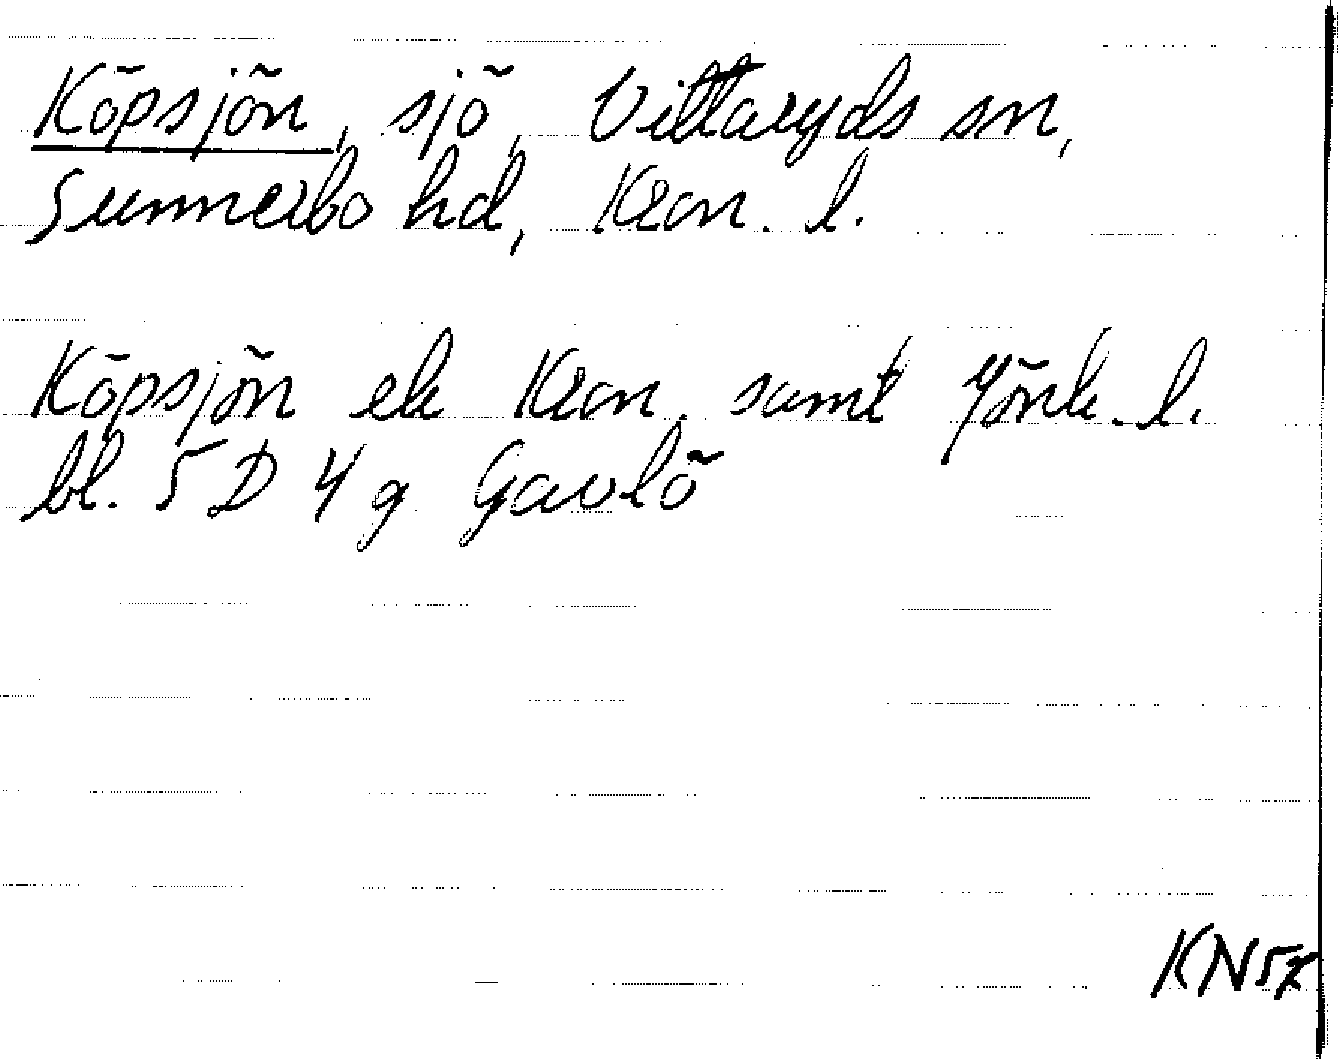 Köpsjön, sjö, Vittaryds sn,
Sunnerbo hd, Kron. l.
Köpsjön ek Kron. samt Jönk. l.
bl. 5 D 4 g Gavlö